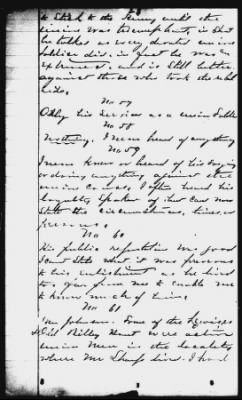 to stick to the Army until the
union was triumphant, is that
he talked as every devoted union
soldier did. in fact he was
extremist. and is still bitter
against those who took the rebel
side.
No 57
Only his services as a union Soldier
No 58
Nothing. I never heard of anything
No 59
I never knew or heard of his saying
or doing anything against the
union cause. I often heard his
loyalty spoken of but can now
State the circumstances, times, or
persons.
No 60
His public reputation was good
I cant State what it was previous
to his enlistment as he lived
too far from me to enable me
to know much of him.
No 61
Johnson. Some of the
and Riley were active
union Men in the locality
where Mr Sharp lived. I had